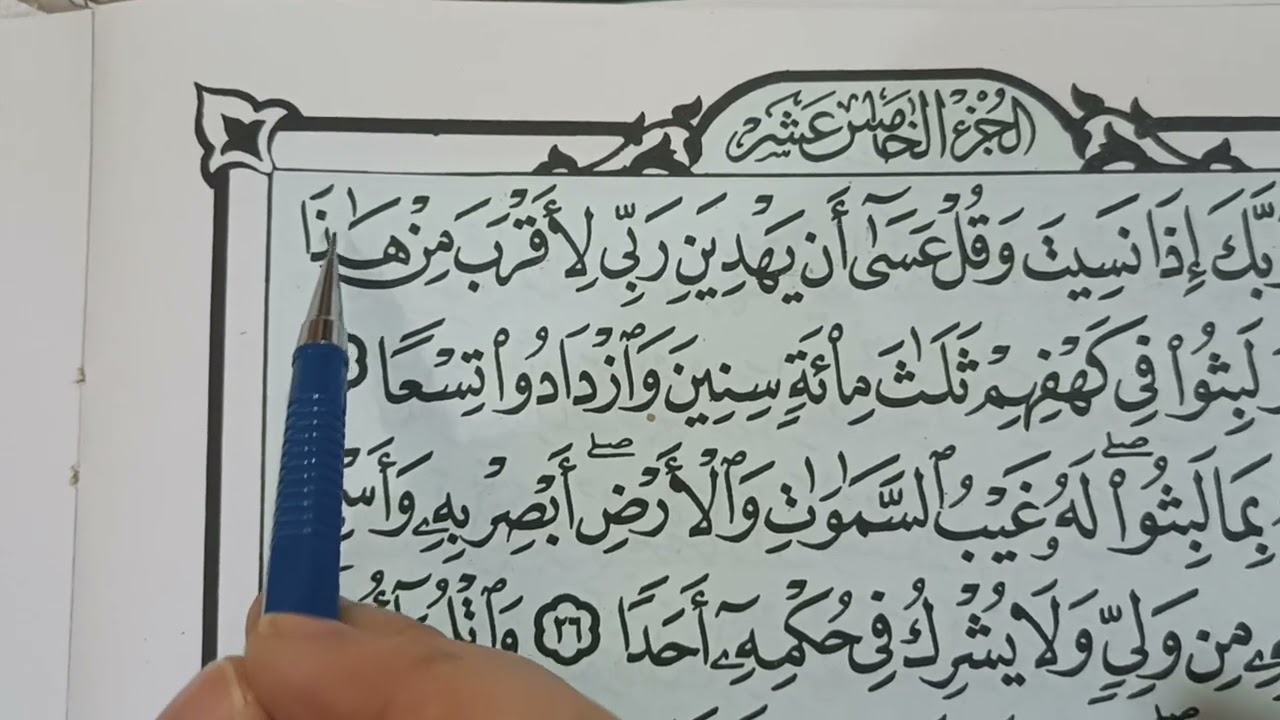 الجزء الخامس عشر
رَّبَّكَ إِذَا نَسِيتَ وَقُلْ عَسَىٰٓ أَن يَهْدِيَنِ رَبِّى لِأَقْرَبَ مِنْ هَـٰذَا
لَبِثُوا۟ فِى كَهْفِهِمْ ثَلَـٰثَ مِا۟ئَةٍ سِنِينَ وَٱزْدَادُوا۟ تِسْعًا
بِمَا لَبِثُوا۟ ۖ لَهُۥ غَيْبُ ٱلسَّمَـٰوَٰتِ وَٱلْأَرْضِ ۖ أَبْصِرْ بِهِۦ
مِن وَلِىٍّ وَلَا يُشْرِكُ فِى حُكْمِهِۦٓ أَحَدًا ٢٦